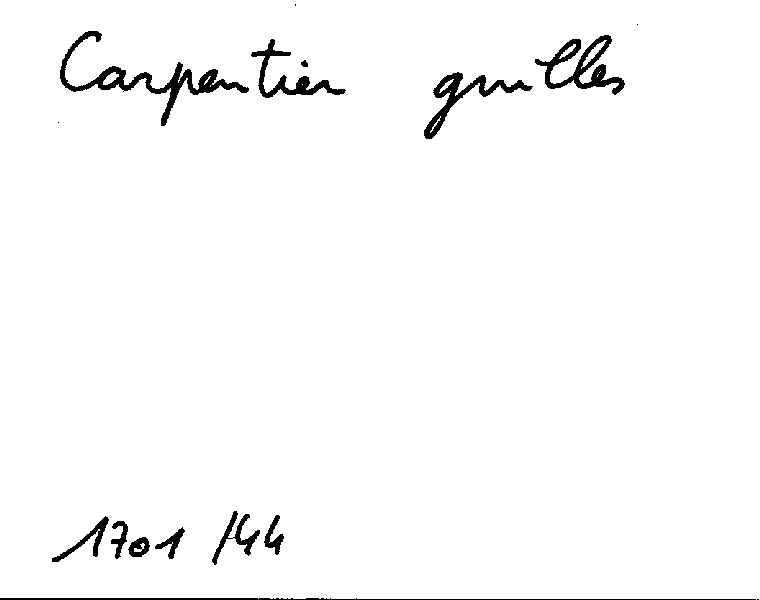 Carpentier guilles
1701 /44